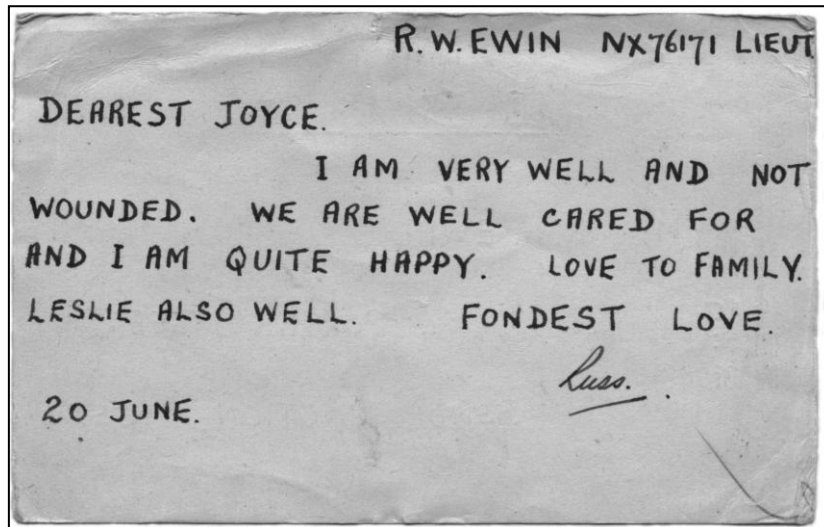 R.W.EWIN NX76171 LIEUT
DEAREST JOYCE.
I AM VERY WELL AND NOT
WOUNDED. WE ARE WELL CARED FOR
AND I AM QUITE HAPPY. LOVE TO FAMILY.
LESLIE ALSO WELL. FONDEST LOVE.
Russ.
20 JUNE.